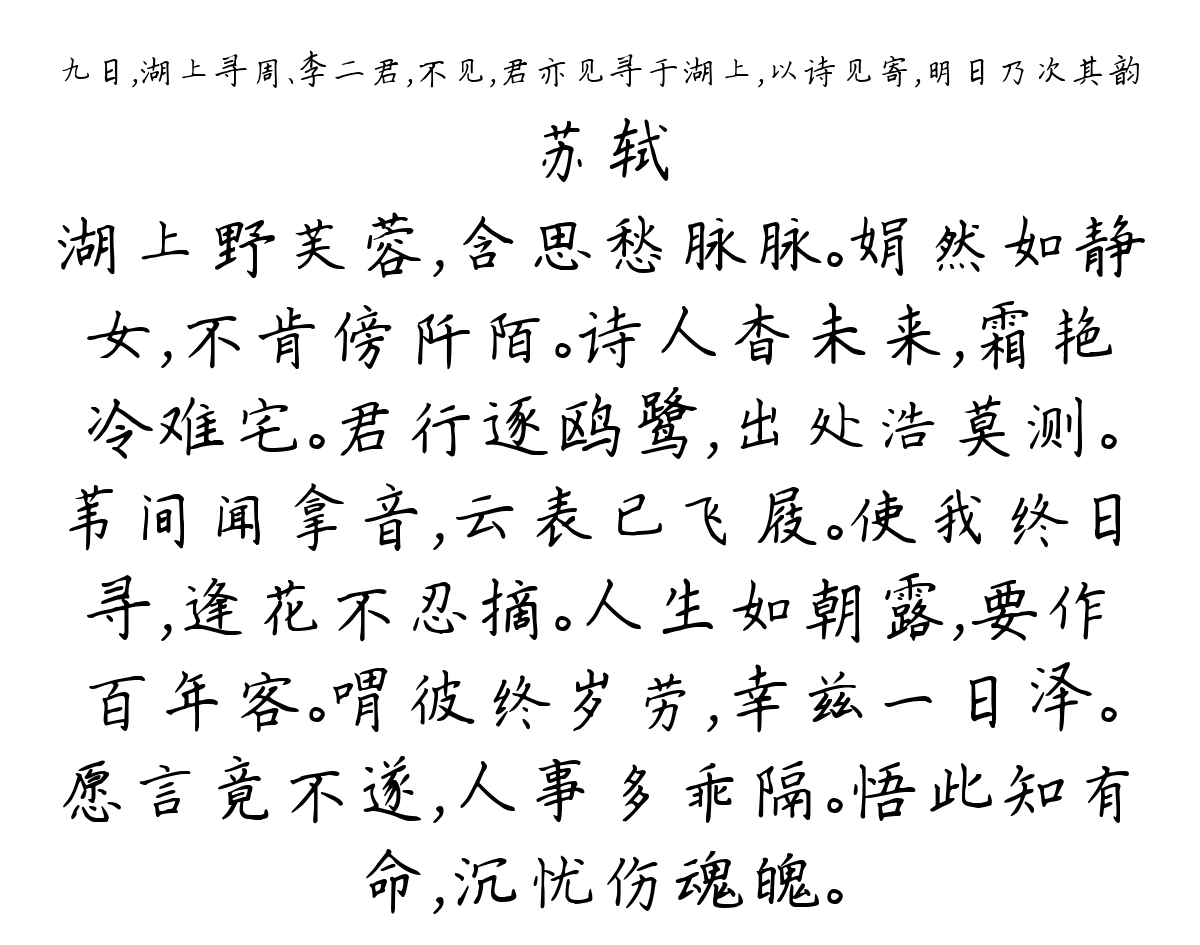 九日,湖上寻周、李二君,不见,君亦见寻于湖上,以诗见寄,明日乃次其韵
苏轼
湖上野芙蓉,含思愁脉脉。娟然如静
女,不肯傍阡陌。诗人杳未来,霜艳
冷难宅。君行逐鸥鹭,出处浩莫测。
苇间闻拿音,云表已飞屐。使我终日
寻,逢花不忍摘。人生如朝露,要作
百年客。喟彼终岁劳,幸兹一日泽。
愿言竟不遂,人事多乖隔。悟此知有
命,沉忧伤魂魄。